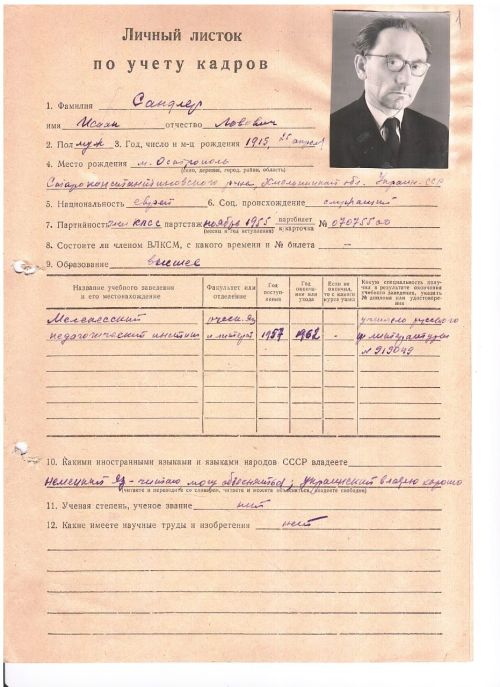 1
Личный листок
по учету кадров
1. Фамилия Сандлер
имя Исаак отчество Львович
2. Пол муж 3. Год, число и м-ц рождения 1915, 25 апреля
4. Место рождения м. Остропол
(село, деревня, город, район, область)
Староконстантиновского р-на, Хмельницкой обл. Украин. ССР
5. Национальность еврей 6. Соц. происхождение служащий
7. Партийность член КПСС партстаж ноябрь 1955 партбилет к/карточка № 07075500
(месяц и год вступления)
8. Состоите ли членом ВЛКСМ, с какого времени и № билета —
9. Образование высшее
Название учебного заведения и его местонахождение
Факультет или отделение
Год поступления
Год окончания или ухода
Если не окончил, то с какого курса ушел
Какую специальность получил в результате окончания учебного заведения, указать № диплома или удостоверения
Мелекесский русск. яз учителя русского
педагогический институт и литерат 1957 1962 - яз литературы
№ 919049
10. Какими иностранными языками и языками народов СССР владеете
немецкий яз - читаю могу объясняться; украинский владею хорошо
(читаете и переводите со словарем, читаете и можете объясняться, владеете свободно)
11. Ученая степень, ученое звание нет
12. Какие имеете научные труды и изобретения нет